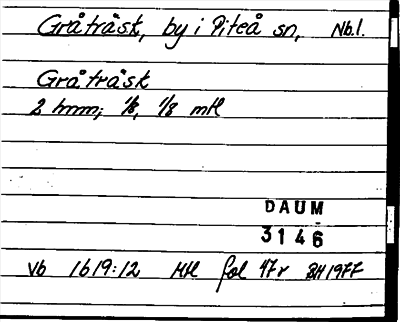 Gråträsk, by i Piteå sn, Nb.l.
Gråträsk
2 hmn; 1/8, 1/8 mtl
DAUM
3146
Vb 1619:12 Mtl fol 47r BH1977